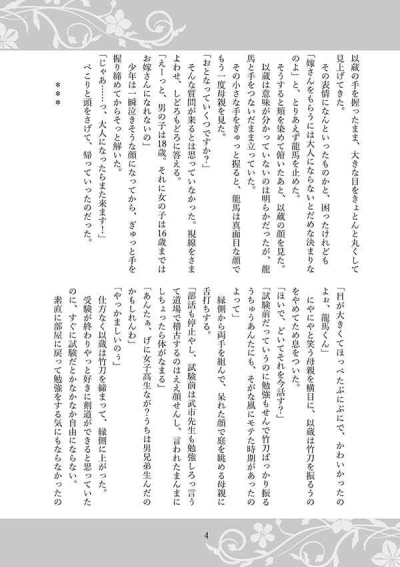 以蔵の手を握ったまま、大きな目をきょとんと丸くして
見上げてきた。
その表情になんといったものかと、困ったけれども
「嫁さんをもらうには大人にならないとだめな決まりな
のよ」と、とりあえず龍馬を止めた。
そうすると頬を染めて俯いたあと、以蔵の顔を見た。
以蔵は意味が分かっていないのは明らかだったが、龍
馬と手をつないだまま立っていた。
その小さな手をぎゅっと握ると、龍馬は真面目な顔で
もう一度母親を見た。
「おとなっていくつですか？」
そんな質問が来るとは思っていなかった。視線をさま
よわせ、しどろもどろに答える。
「えーっと、男の子は18歳、それに女の子は16歳までは
お嫁さんになれないの」
少年は一瞬泣きそうな顔になってから、ぎゅっと手を
握り締めてからそっと解いた。
「じゃあ……っ、大人になったらまた来ます！」
ぺこりと頭をさげて、帰っていったのだった。
＊＊＊
「目が大きくてほっぺたぷにぷにで、かわいかったの
よぉ、龍馬くん」
にやにやと笑う母親を横目に、以蔵は竹刀を振るうの
をやめてため息をついた。
「ほいで、どいてそれを今話す？」
「試験前だっていうのに勉強もせんで竹刀ばっかり振る
うちゅうあんたにも、そがな風にモテた時期があったの
よって」
縁側から両手を組んで、呆れた顔で庭を眺める母親に
舌打ちする。
「部活も停止やし、試験前は武市先生も勉強しろっ言う
て道場で稽古するのはええ顔せんし、言われたまんまに
しちょったら体がなまる」
「あんたぁ、げに女子高生なが？うちは男兄弟生んだの
かもしれんわ」
「やっかましいのぅ」
仕方なく以蔵は竹刀を締まって、縁側に上がった。
受験が終わりやっと好きに剣道ができると思っていた
のに、すぐに試験だとかなかなか自由にならない。
素直に部屋に戻って勉強をする気にもならなかったの
4